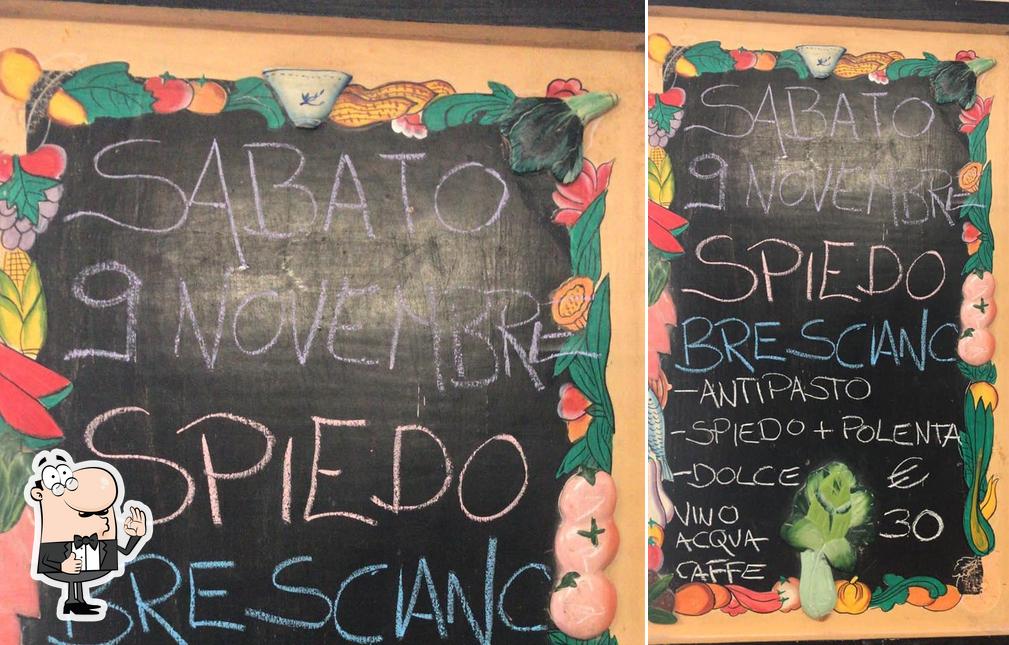 SABATO
9 NOVEMBRE
SPIEDO
BRESCIANO
SABATO
9 NOVEMBRE
SPIEDO
BRESCIANO
-ANTIPASTO
-SPIEDO + POLENTA
-DOLCE €
30
VINO
ACQUA
CAFFE